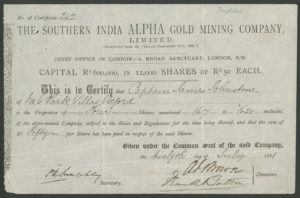 No. of Certificate 242
THE SOUTHERN INDIA ALPHA GOLD MINING COMPANY,
LIMITED.
CHIEF OFFICE IN LONDON:—8, BROAD SANCTUARY, LONDON, S.W.
CAPITAL £600,000, IN 12,000 SHARES OF £50 EACH.
This is to Certify that Captain James Johnstone
of Park Villas Oxford
is the Proprietor of Four Shares, numbered 1617 to 1620 inclusive,
of the above-named Company, subject to the Rules and Regulations for the time being thereof, and that the sum of
Fifty per Share has been paid in respect of the said Shares.
Given under the Common Seal of the said Company,
the twelfth day of July 1881
Secretary.
Directors.